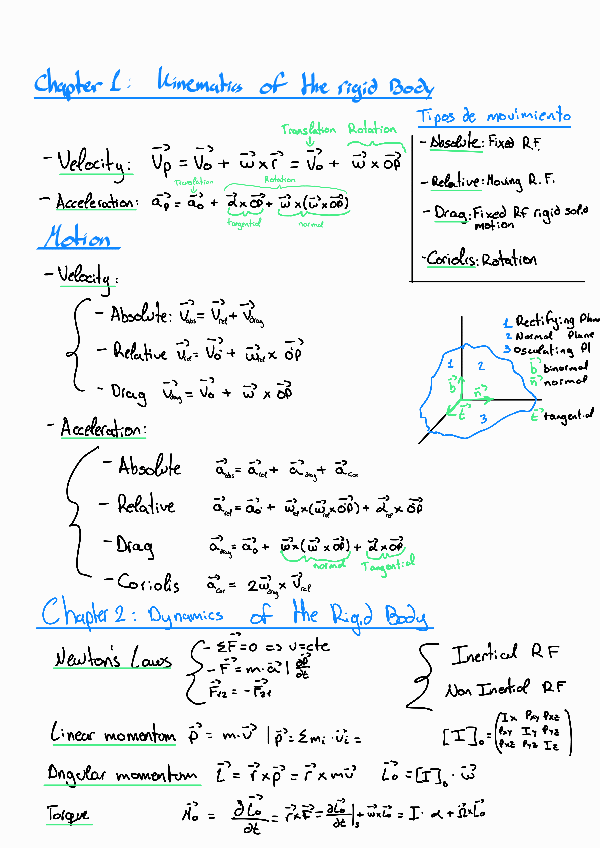 Chapter 1: Kinematics of the rigid Body
Tipos de movimiento
- Absolute: Fixed R.F.
- Relative: Moving R.F.
- Drag: Fixed RF rigid solid motion
- Coriolis: Rotation
Translation Rotation
- Velocity: V⃗p = V⃗o + ω⃗ x r⃗ = V⃗o + ω⃗ x OP⃗
Translation Rotation
- Acceleration: a⃗p = a⃗o + α⃗ x OP⃗ + ω⃗ x (ω⃗ x OP⃗)
tangential normal
Motion
- Velocity:
- Absolute: V⃗abs = V⃗rel + V⃗drag
- Relative V⃗rel = V⃗o + ω⃗rel x OP⃗
- Drag V⃗drag = V⃗o + ω⃗ x OP⃗
1 Rectifying Plane
2 Normal Plane
3 Osculating Pl
b⃗ binormal
n⃗ normal
t⃗ tangential
1 2
b⃗ n⃗
t⃗ 3
- Acceleration:
- Absolute a⃗abs = a⃗rel + a⃗drag + a⃗cor
- Relative a⃗rel = a⃗o + ω⃗rel x (ω⃗rel x OP⃗) + α⃗rel x OP⃗
- Drag a⃗drag = a⃗o + ω⃗ x (ω⃗ x OP⃗) + α⃗ x OP⃗
normal Tangential
- Coriolis a⃗cor = 2ω⃗drag x V⃗rel
Chapter 2: Dynamics of the Rigid Body
Newton's Laws
- ΣF⃗ = 0 => v = cte
- F⃗ = m · a⃗ | ∂p⃗/∂t
F⃗12 = -F⃗21
Inertial RF
Non Inertial RF
Linear momentum p⃗ = m · v⃗ | p⃗ = Σmi · v⃗i =
[I]o = (Ix Pxy Pxz
Pxy Iy Pyz
Pxz Pyz Iz)
Angular momentum L⃗ = r⃗ x p⃗ = r⃗ x mv⃗ L⃗o = [I]o · ω⃗
Torque M⃗o = ∂L⃗o/∂t = r⃗ x F⃗ = ∂L⃗o/∂t|s + ω x L⃗o = I · α + Ω⃗ x L⃗o